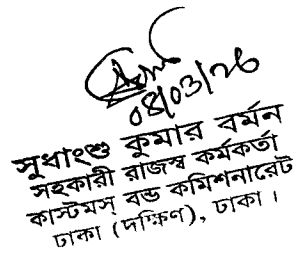 08/03/26
সুধাংশু কুমার বর্মন
সহকারী রাজস্ব কর্মকর্তা
কাস্টমস্ বন্ড কমিশনারেট
ঢাকা (দক্ষিণ), ঢাকা ।